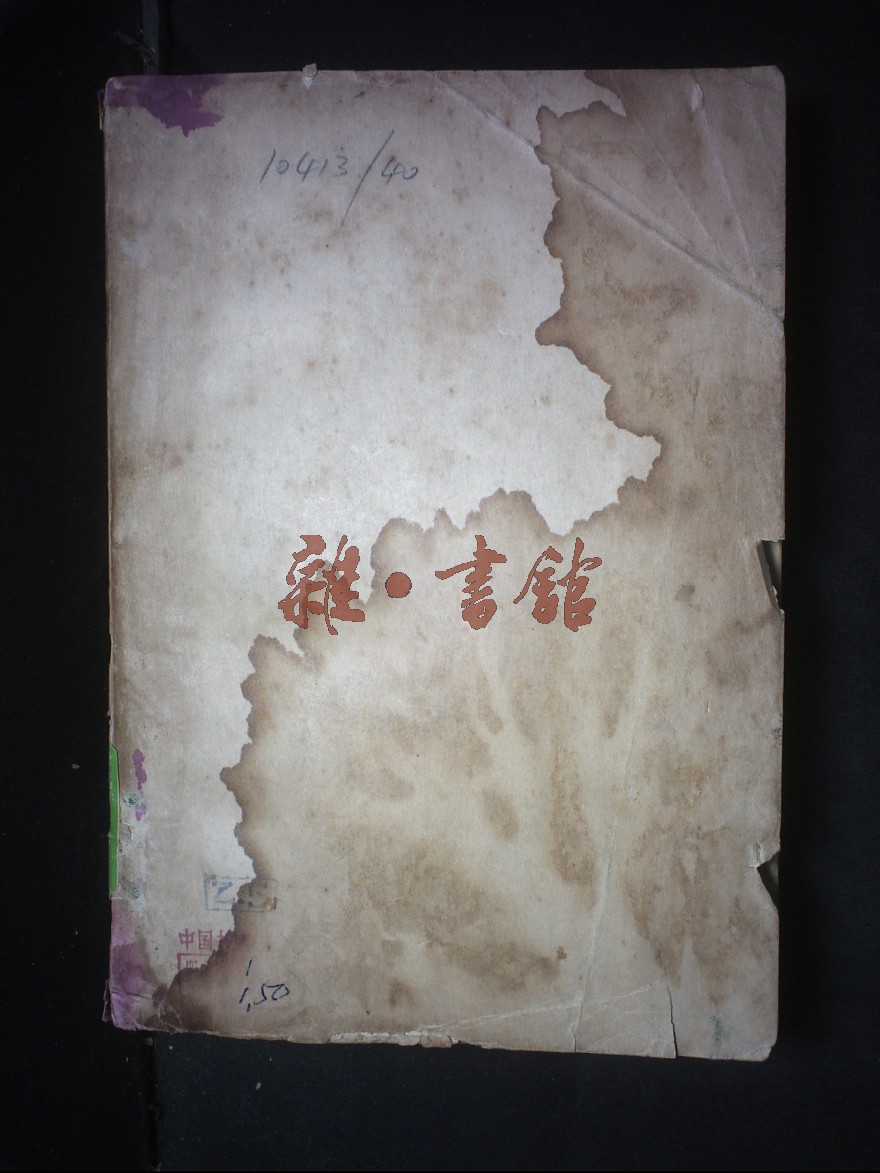 10413/40
雜·書館
中国
1
1,50